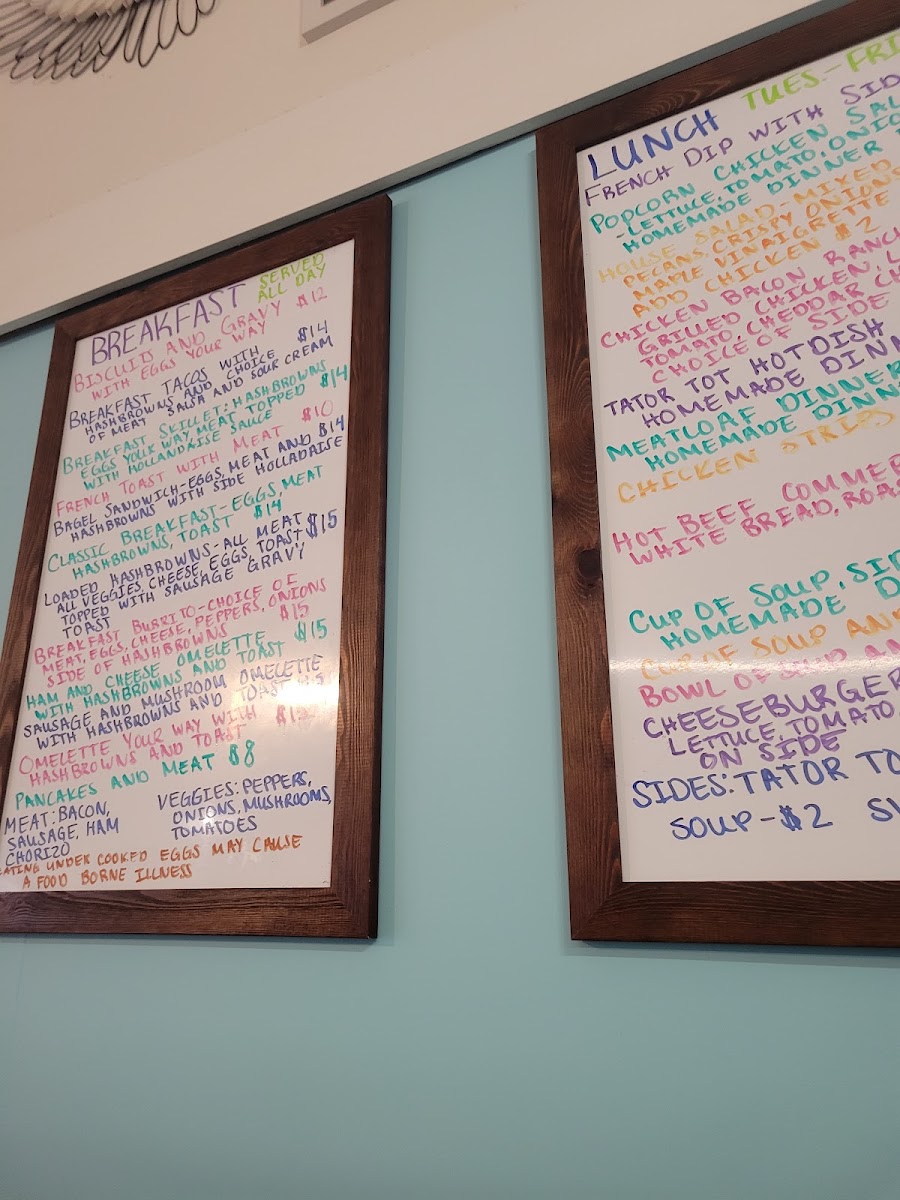 BREAKFAST SERVED
ALL DAY
BISCUITS AND GRAVY $12
WITH EGGS YOUR WAY
BREAKFAST TACOS WITH $14
HASHBROWNS AND CHOICE
OF MEAT SALSA AND SOUR CREAM
BREAKFAST SKILLET: HASHBROWNS
EGGS YOUR WAY, MEAT, TOPPED $14
WITH HOLLANDAISE SAUCE
FRENCH TOAST WITH MEAT $10
BAGEL SANDWICH-EGGS, MEAT AND $14
HASHBROWNS WITH SIDE HOLLADAISE
CLASSIC BREAKFAST-EGGS, MEAT
HASHBROWNS, TOAST $14
LOADED HASHBROWNS-ALL MEAT $15
ALL VEGGIES, CHEESE, EGGS, TOAST
TOPPED WITH SAUSAGE GRAVY
TOAST
BREAKFAST BURRITO-CHOICE OF
MEAT, EGGS, CHEESE, PEPPERS, ONIONS
SIDE OF HASHBROWNS $15
HAM AND CHEESE OMELETTE $15
WITH HASHBROWNS AND TOAST
SAUSAGE AND MUSHROOM OMELETTE
WITH HASHBROWNS AND TOAST
OMELETTE YOUR WAY WITH
HASHBROWNS AND TOAST
PANCAKES AND MEAT $8
MEAT: BACON,
SAUSAGE, HAM
CHORIZO
VEGGIES: PEPPERS,
ONIONS, MUSHROOMS,
TOMATOES
EATING UNDER COOKED EGGS MAY CAUSE
A FOOD BORNE ILLNESS
LUNCH TUES.-FRI
FRENCH DIP WITH SID
POPCORN CHICKEN SAL
-LETTUCE, TOMATO, ONIO
HOMEMADE DINNER
HOUSE SALAD-MIXED
PECANS, CRISPY ONIONS
MAPLE VINAIGRETTE
ADD CHICKEN $2
CHICKEN BACON RANC
GRILLED CHICKEN, L
TOMATO, CHEDDAR CH
CHOICE OF SIDE
TATOR TOT HOTDISH
HOMEMADE DINN
MEATLOAF DINNER
HOMEMADE DINN
CHICKEN STRIPS
HOT BEEF COMMER
WHITE BREAD, ROAS
CUP OF SOUP, SID
HOMEMADE D
CUP OF SOUP AND
BOWL OF SOUP AN
CHEESEBURGER
LETTUCE, TOMATO
ON SIDE
SIDES: TATOR TO
SOUP-$2